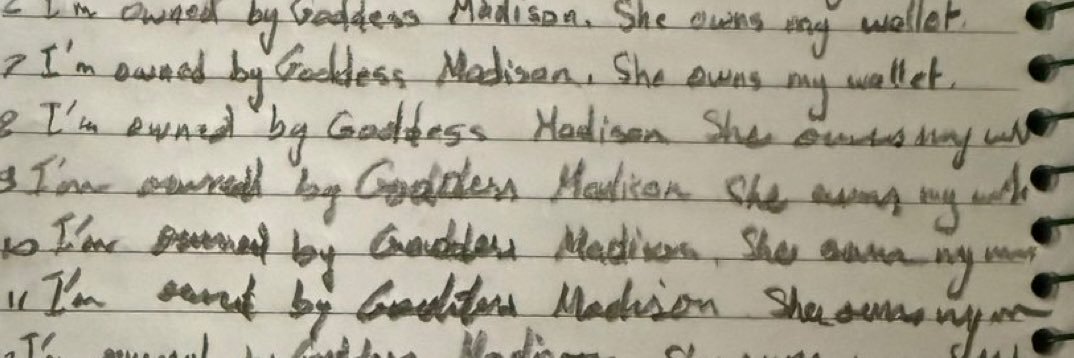 6 I'm owned by Goddess Madison. She owns my wallet.
7 I'm owned by Goddess Madison. She owns my wallet.
8 I'm owned by Goddess Madison She owns my
9 I'm owned by Goddess Madison She owns my
10 I'm owned by Goddess Madison. She owns my
11 I'm owned by Goddess Madison She owns my
I'm owned by Goddess Madison